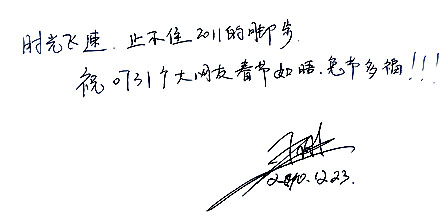 时光飞速.止不住2011的脚步
祝0731个大网友春节如唔.兔节多福!!!
2010.12.23.